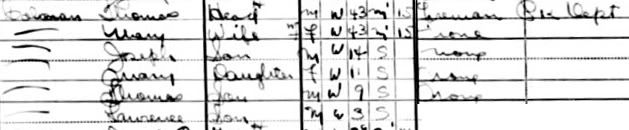 Thomas Head M W 43 M 15 Foreman Dept
— Mary Wife F W 43 M 15 None
— Joseph Son M W 14 S None
— Mary Daughter F W 11 S None
— Thomas Son M W 9 S None
— Lawrence Son M W 3 S